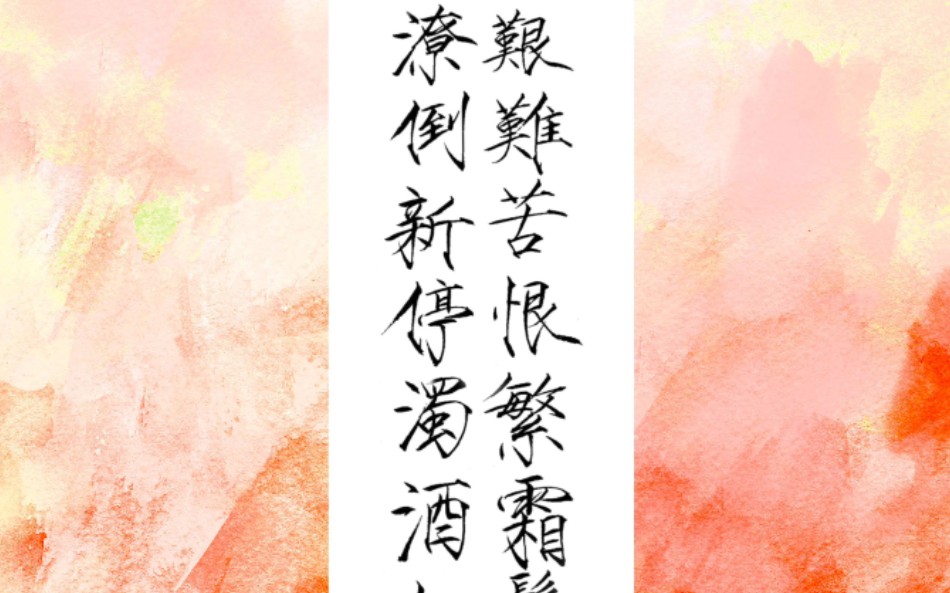 艱難苦恨繁霜
潦倒新停濁酒